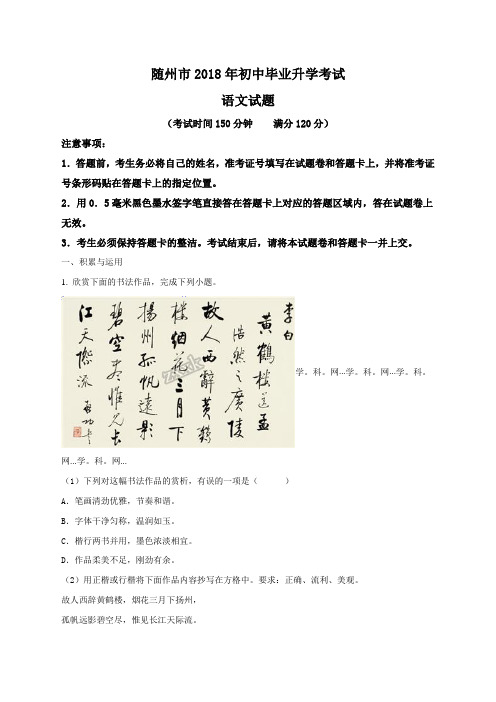 随州市2018年初中毕业升学考试
语文试题
（考试时间150分钟 满分120分）
注意事项：
1．答题前，考生务必将自己的姓名，准考证号填写在试题卷和答题卡上，并将准考证
号条形码贴在答题卡上的指定位置。
2．用0．5毫米黑色墨水签字笔直接答在答题卡上对应的答题区域内，答在试题卷上
无效。
3．考生必须保持答题卡的整洁。考试结束后，请将本试题卷和答题卡一并上交。
一、积累与运用
1. 欣赏下面的书法作品，完成下列小题。
李白
黄鹤楼送孟
浩然之廣陵
故人西辭黄鹤
楼烟花三月下
揚州孤帆遠影
碧空尽惟见长
江天際流
启功书
学。科。网...学。科。网...学。科。
网...学。科。网...
（1）下列对这幅书法作品的赏析，有误的一项是（ ）
A．笔画清劲优雅，节奏和谐。
B．字体干净匀称，温润如玉。
C．楷行两书并用，墨色浓淡相宜。
D．作品柔美不足，刚劲有余。
（2）用正楷或行楷将下面作品内容抄写在方格中。要求：正确、流利、美观。
故人西辞黄鹤楼，烟花三月下扬州，
孤帆远影碧空尽，惟见长江天际流。